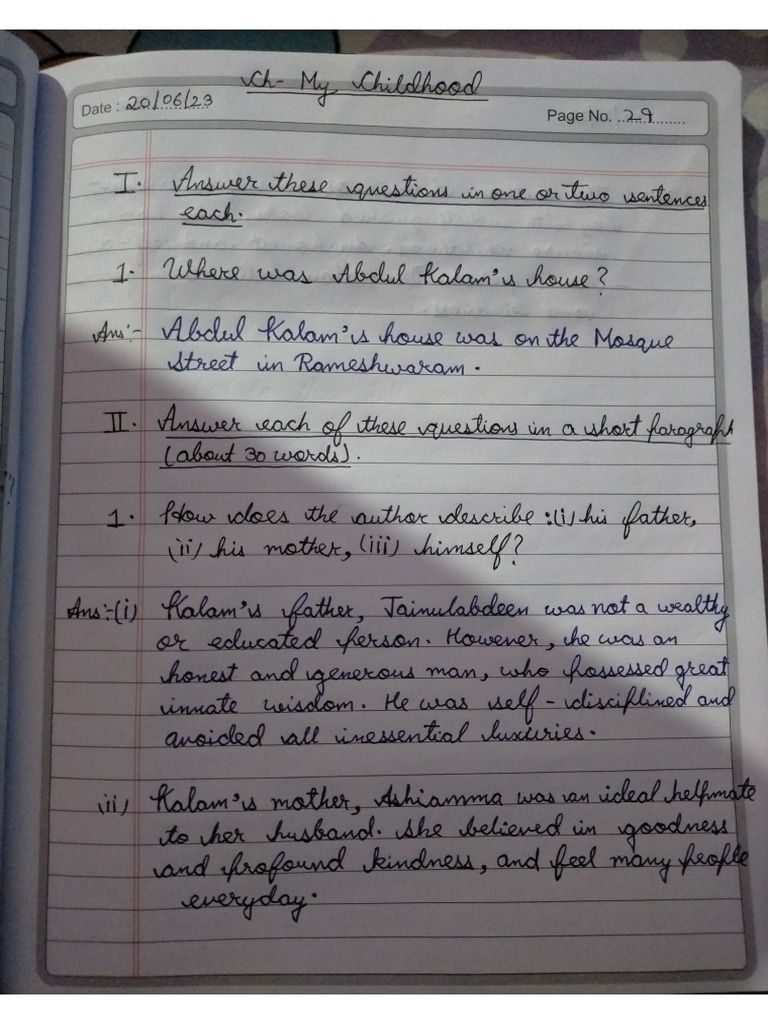 Ch- My Childhood
Date : 20/06/23
Page No. 29
I. Answer these questions in one or two sentences
each.
1. Where was Abdul Kalam's house?
Ans:- Abdul Kalam's house was on the Mosque
Street in Rameshwaram.
II. Answer each of these questions in a short paragraph
(about 30 words).
1. How does the author describe :(i) his father,
(ii) his mother, (iii) himself?
Ans:-(i) Kalam's father, Jainulabdeen was not a wealthy
or educated person. However, he was an
honest and generous man, who possessed great
innate wisdom. He was self-disciplined and
avoided all inessential luxuries.
ii) Kalam's mother, Ashiamma was an ideal helpmate
to her husband. She believed in goodness
and profound kindness, and feel many people
everyday.